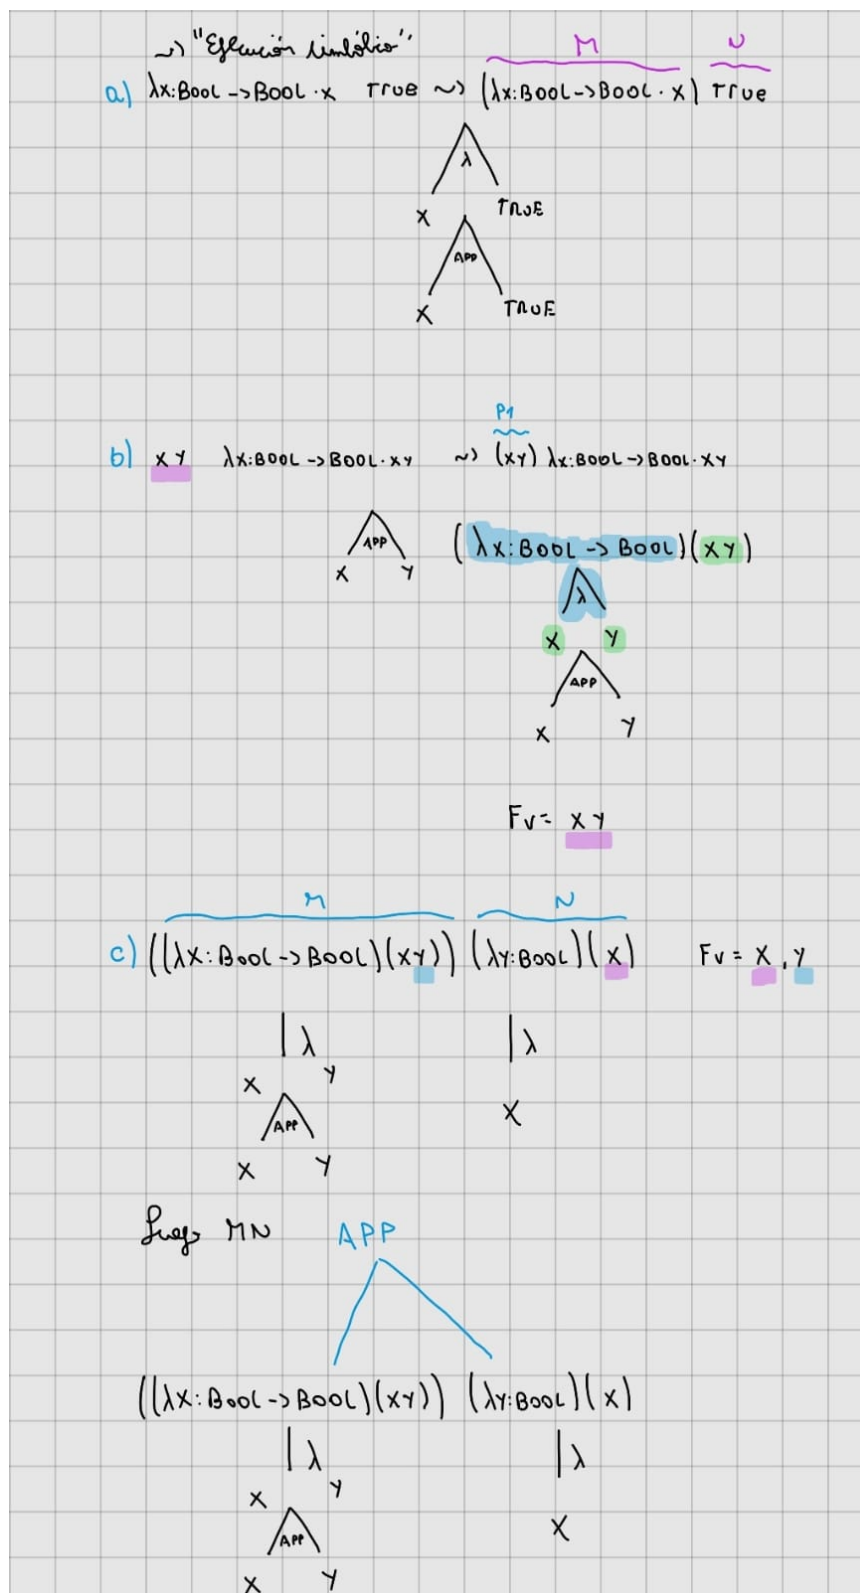 ~> "Ejecución simbólica"
M N
a) λx:Bool->BOOL·x True ~> (λx:BOOL->BOOL·x) True
λ
X TRUE
APP
X TRUE
P1
b) XY λx:BOOL->BOOL·XY ~> (XY) λx:BOOL->BOOL·XY
APP
X Y
(λx:BOOL->BOOL)(XY)
λ
X Y
APP
X Y
Fv= XY
M N
c) ((λX:BOOL->BOOL)(XY)) (λY:BOOL)(X) Fv = X, Y
λ λ
X Y
APP X
X Y
Luego MN APP
((λX:BOOL->BOOL)(XY)) (λY:BOOL)(X)
λ λ
X Y
APP X
X Y